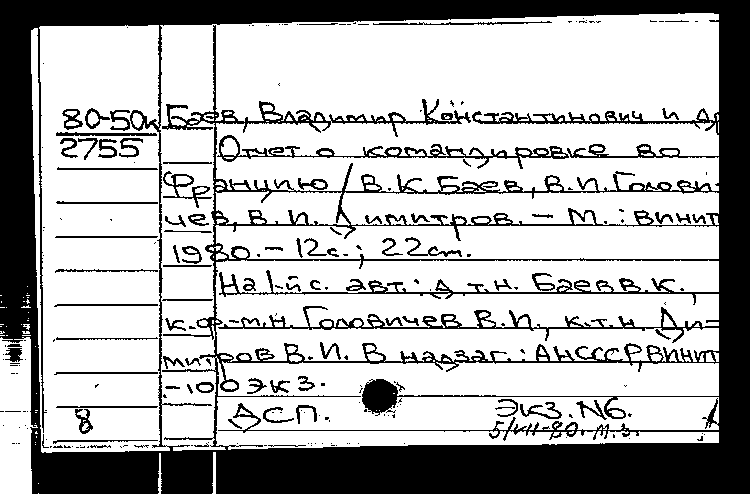 80-50к Баев, Владимир Константинович и др
2755 Отчет о командировке во
Францию / В.К. Баев, В.И. Голови-
чев, В. И. Димитров. – М. : ВИНИТ
1980. – 12с.; 22см.
На 1-й с. авт.: д.т.н. Баев В.К.,
к.ф.-м.н. Головичев В.И., к.т.н. Ди=
митров В.И. В надзаг.: АН СССР, ВИНИТ
– 100 экз.
8 ДСП. Экз. N6.
5/VII-80. М.З.